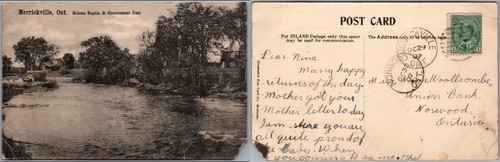 Merrickville, Ont. Mirious Rapids & Government Dam
POST CARD
For INLAND Postage only this space
may be used for communication.
The Address
Dear Nina
Many happy
returns of the day
Mother got your
Mother letter to day
I am sure you are
all quite proud of
the baby. When
you coming to see
Woollcombe,
Union Bank
Norwood,
Ontario